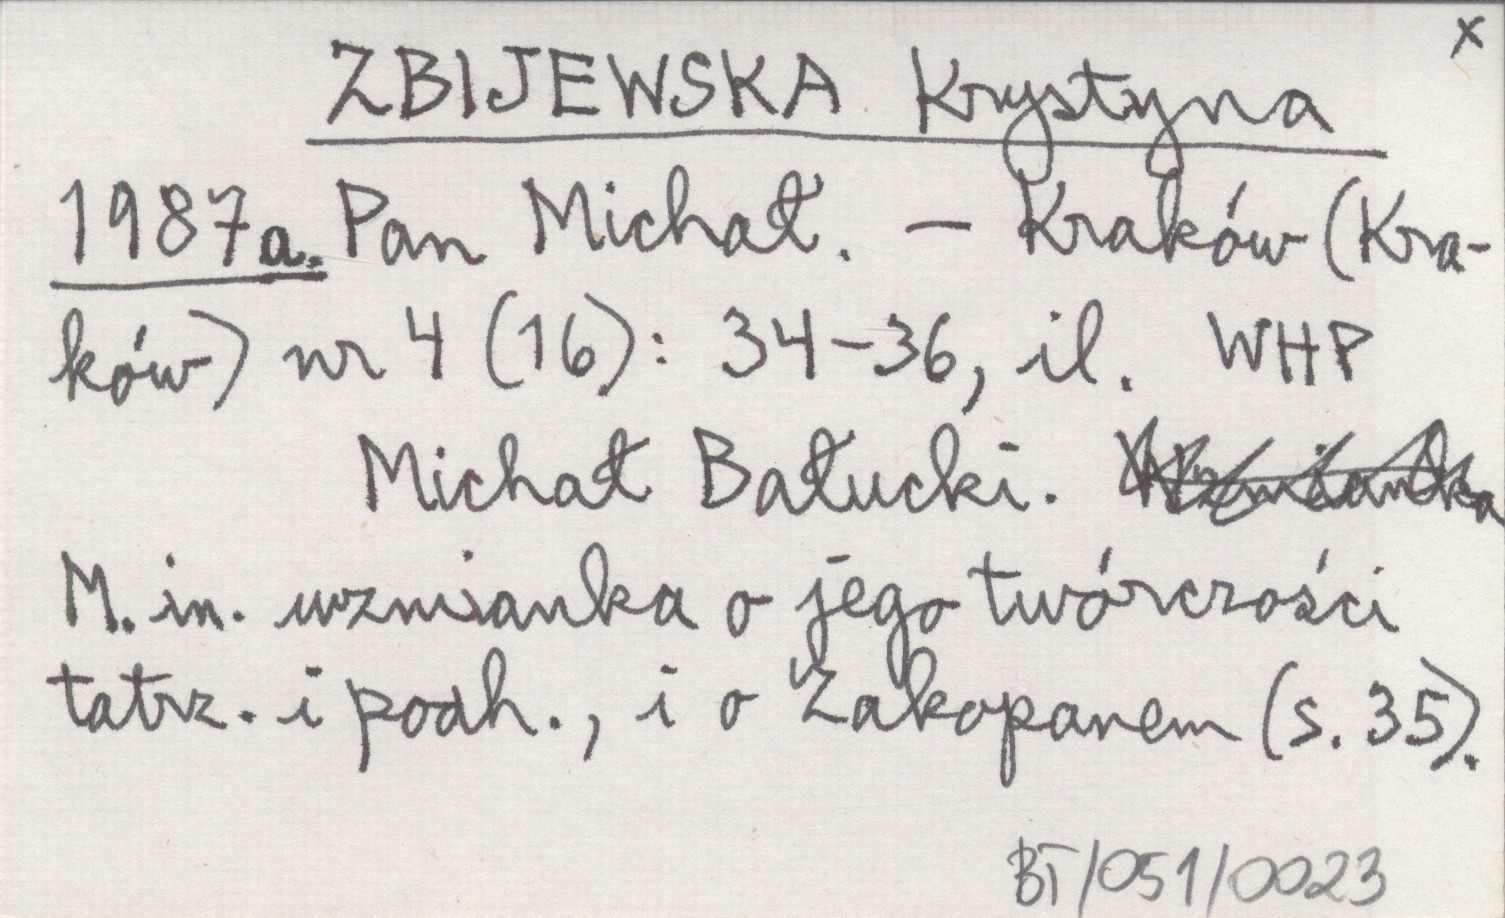 x
ZBIJEWSKA Krystyna
1987a. Pan Michał. – Kraków (Kra-
ków) nr 4 (16): 34–36, il. WHP
Michał Bałucki. Wzmianka
M. in. wzmianka o jego twórczości
tatrz. i podh., i o Zakopanem (s. 35).
BT/051/0023